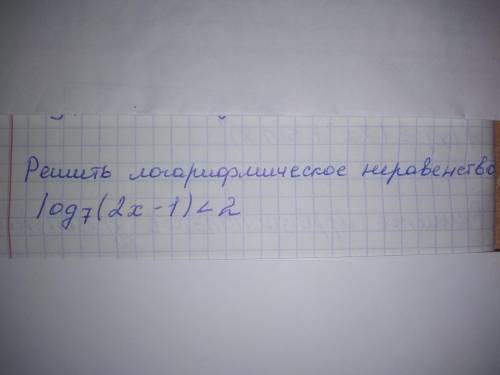 Решить логарифмическое неравенство
log₇(2x-1)<2